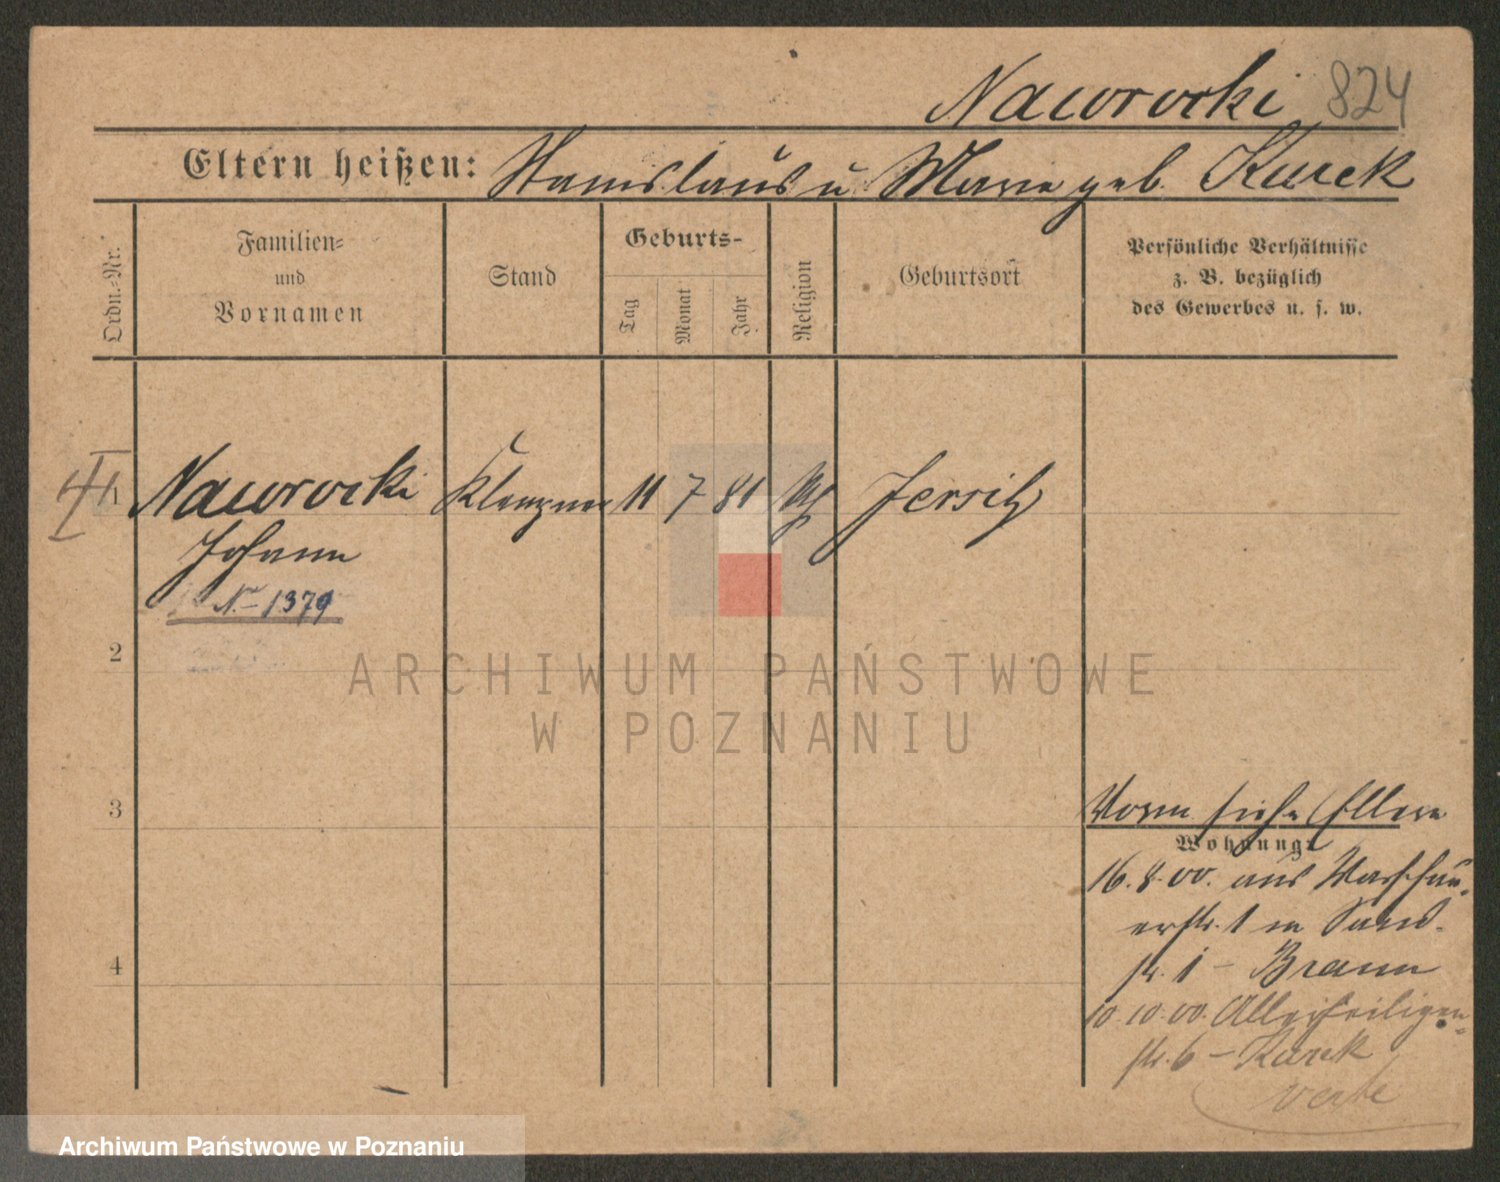 Nawrocki 824
Eltern heißen: Stanislaus u Marie geb. Kurek
Ordn.-Nr.
Familien-
und
Vornamen
Stand
Geburts-
Tag
Monat
Jahr
Religion
Geburtsort
Persönliche Verhältnisse
z. B. bezüglich
des Gewerbes u. s. w.
1 Nawrocki Klempner 11 7 81 Jersitz
Johann
N– 1379
2
3
4
Vorm siehe Eltern
Wohnung:
16.8.00. aus Warschau-
erstr. 1 n Sand-
str. 1 – Braun
10.10.00. Allerheiligen-
str. 6 – Kurek
verte
ARCHIWUM PAŃSTWOWE
W POZNANIU
Archiwum Państwowe w Poznaniu